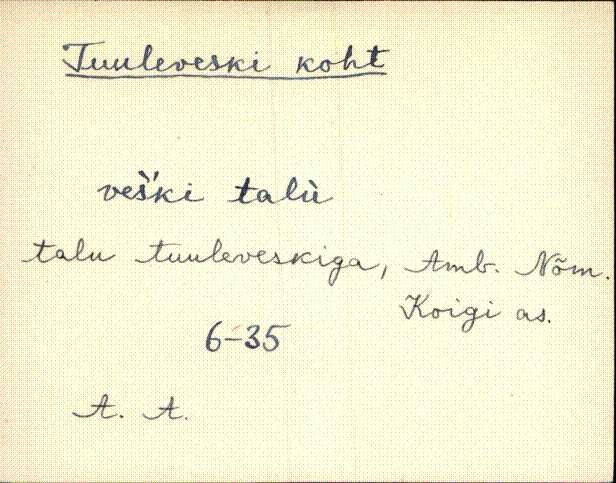 Tuuleveski koht
veš̀ki talù
talu tuuleveskiga, Amb. Nõm.
Koigi as.
6-35
A. A.